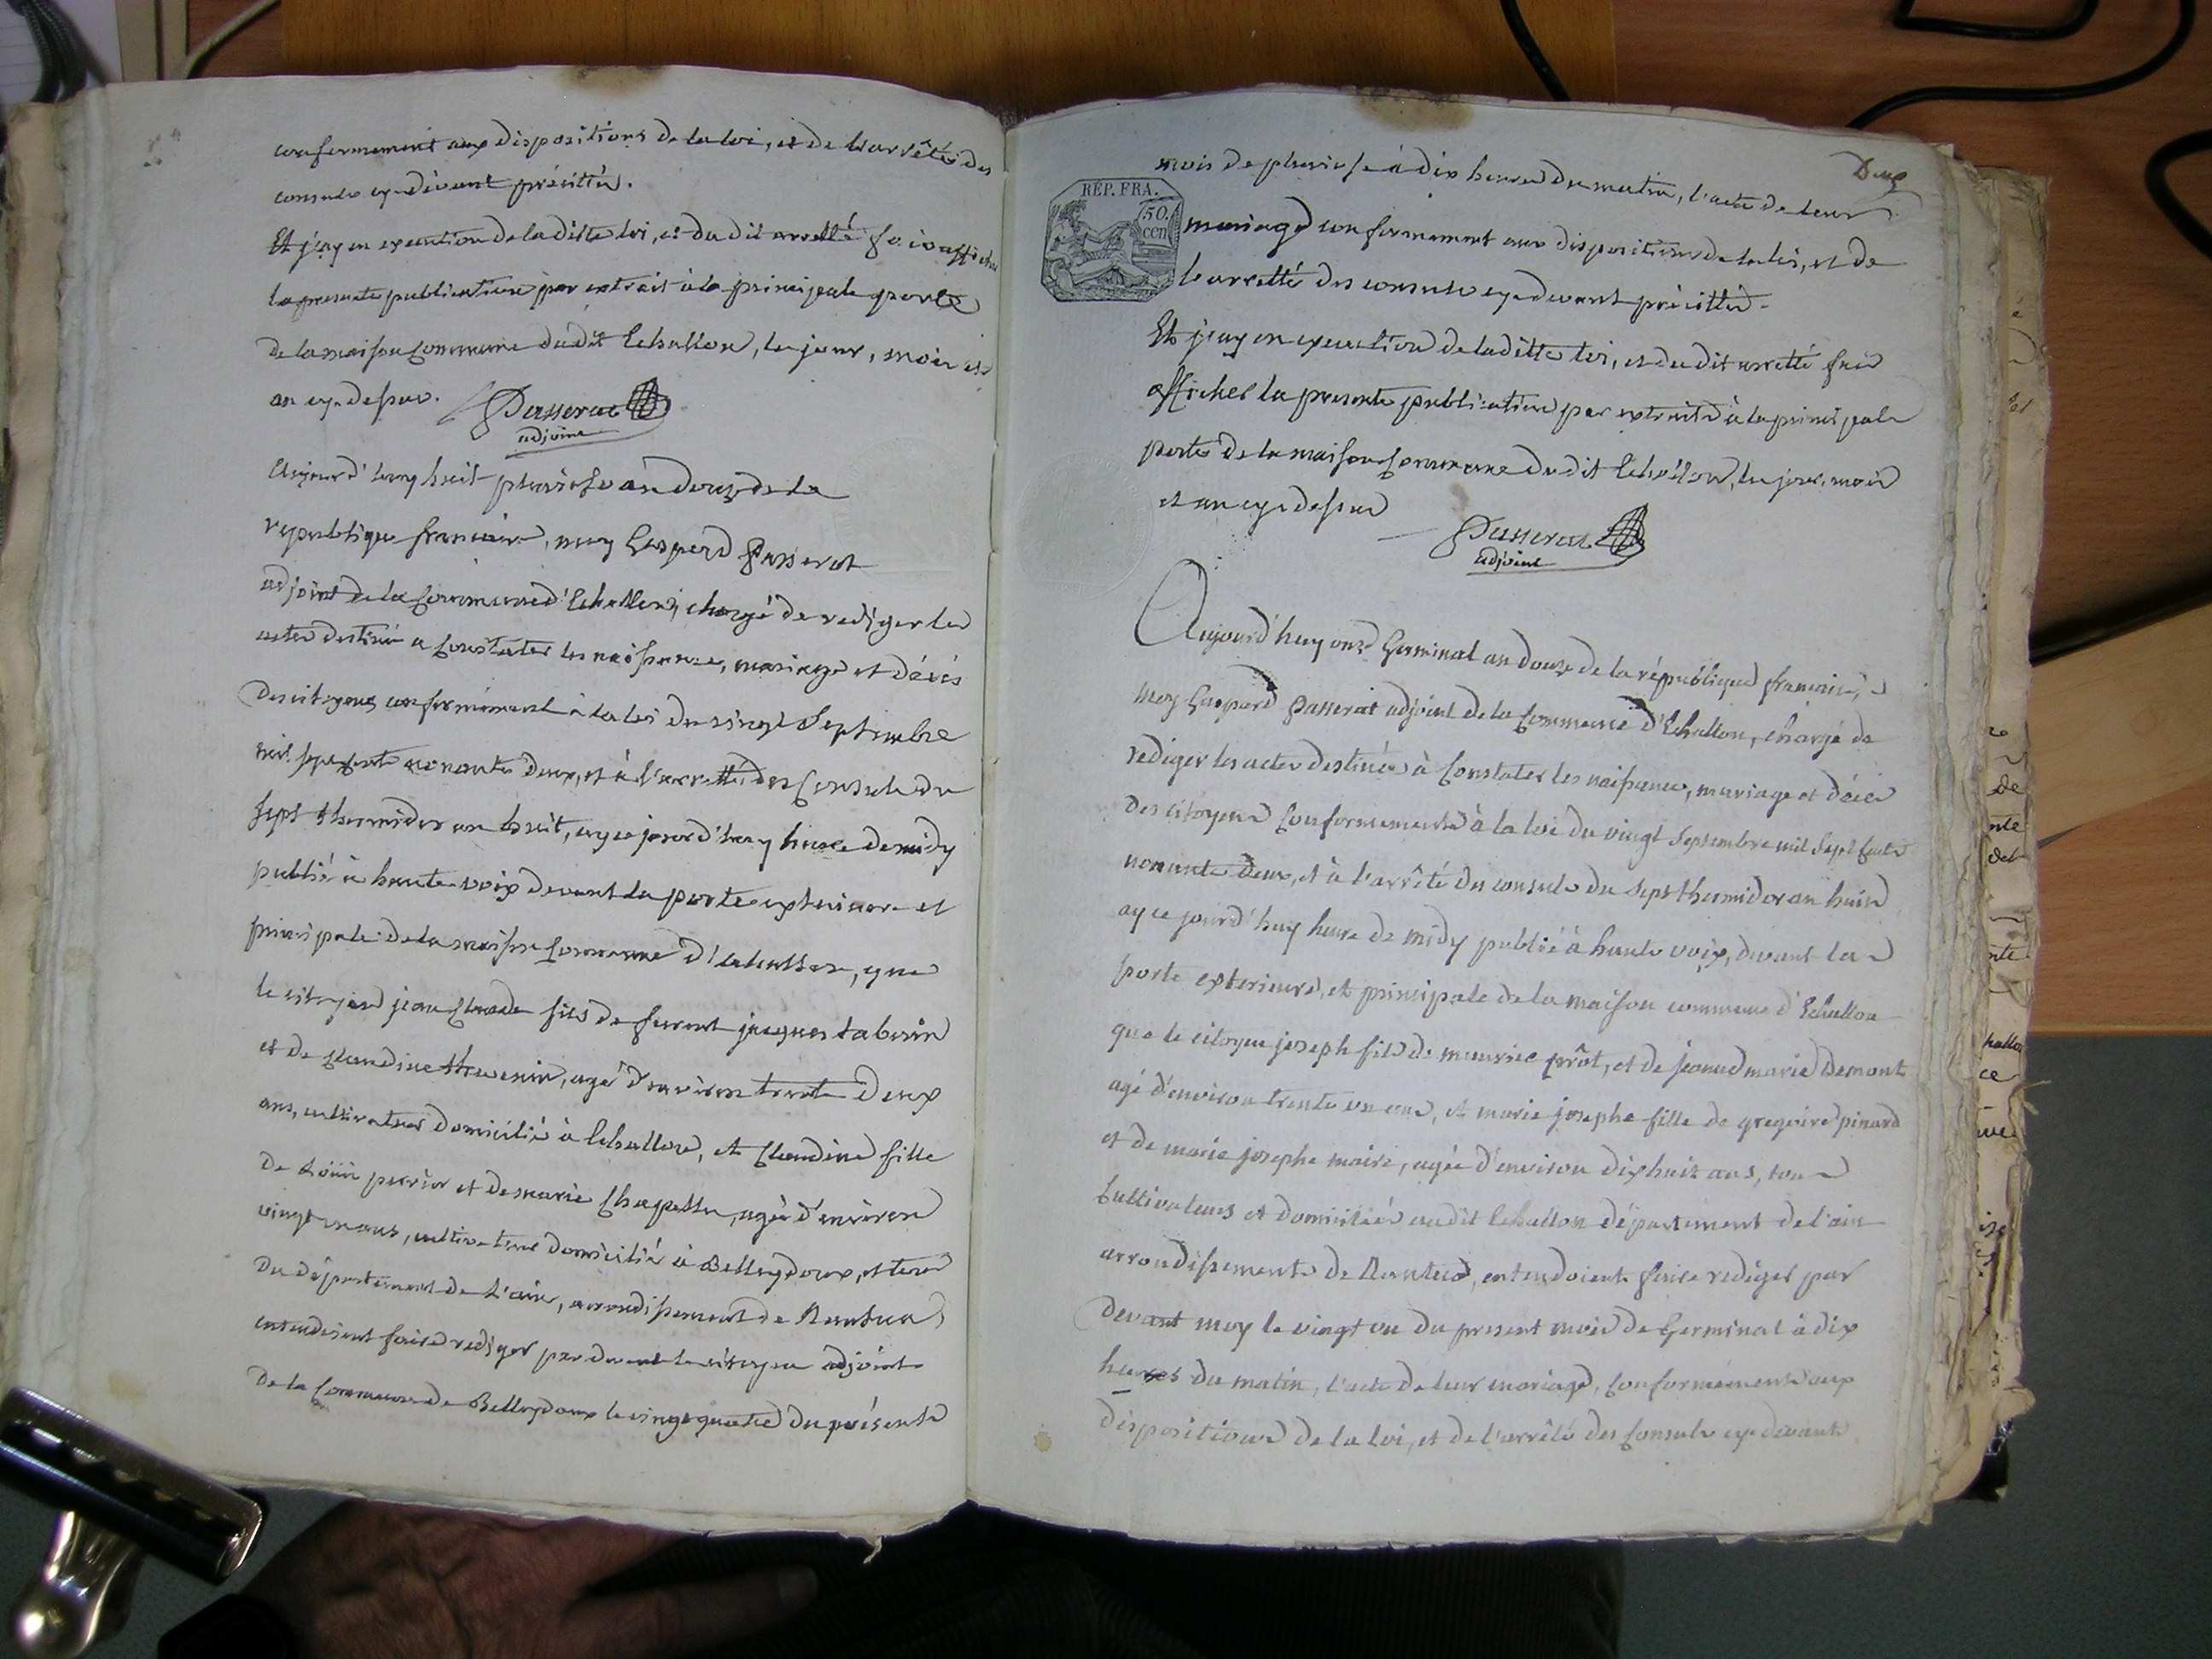 conformement aux dispositions de la loi, et de l'arrêtés des
consuls cy-devant précittés.
Et j'ay en execution de la ditte loi, et du dit arretté fais afficher
la presente publication par extrait à la principale porte
de la maison Commune du dit Echallon, les jour, mois et
an cy-dessus. Passerat
adjoint
Aujourd'huy huit pluviose an douze de la
republique francaise, moy Gaspard Passerat
adjoint de la Commune d'Echallon, chargé de rediger les
actes destinés a Constater les naissance, mariage et décés
des citoyens conformément à la loi du vingt Septembre
mil sept cents nonante deux, et à l'arretté des Consuls du
sept thermidor an huit, ay ce jourd'huy heure de midy
publié à haute voix devant la porte exterieure et
principale de la maison Commune d'Echallon, que
le citoyen jean Claude fils de furent jacques tabouin
et de Claudine thevenin, agé d'environ trente deux
ans, cultivateur domicilié à Echallon, et Claudine fille
de Loüis perrin et de marie Chapelle, agée d'environ
vingt un ans, cultivateur domicilié à Belleydoux, et tous
du département de l'ain, arrondissement de Nantua
entendoient faire rediger par devant le citoyen adjoint
de la Commune de Belleydoux le vingt quatre du présent
Deux
mois de pluviose à dix heures du matin, l'acte de leur
RÉP. FRA.
50.
cen
mariage conformement aux dispositions de la loi, et de
l'arretté des consuls cy-devant précittés.
Et j'ay en execution de la ditte loi, et du dit arretté fais
afficher la presente publication par extrait à la principale
porte de la maison Commune du dit Echallon, les jour, mois
et an cy-dessus
Passerat
adjoint
Aujourd'huy onze Germinal an douze de la république francaise,
moy Gaspard Passerat adjoint de la Commune d'Echallon, chargé de
rediger les actes destinés à Constater les naissance, mariage et décés
des citoyens Conformement à la loi du vingt Septembre mil sept cents
nonante deux, et à l'arrêté des consuls du sept thermidor an huit
ay ce jourd'huy heure de midy publié à haute voix, devant la
porte exterieure, et principale de la maison commune d'Echallon
que le citoyen joseph fils de maurice prôt, et de jeanne marie Demont
agé d'environ trente un ans, et marie josephe fille de gregoire pinard
et de marie josephe maire, agée d'environ dix huit ans, tous
Cultivateurs et domiciliés au dit Echallon département de l'ain
arrondissement de Nantua, entendoient faire rediger par
devant moy le vingt un du present mois de Germinal à dix
heures du matin, l'acte de leur mariage, Conformément aux
dispositions de la loi, et de l'arrêté des Consuls cy-devant